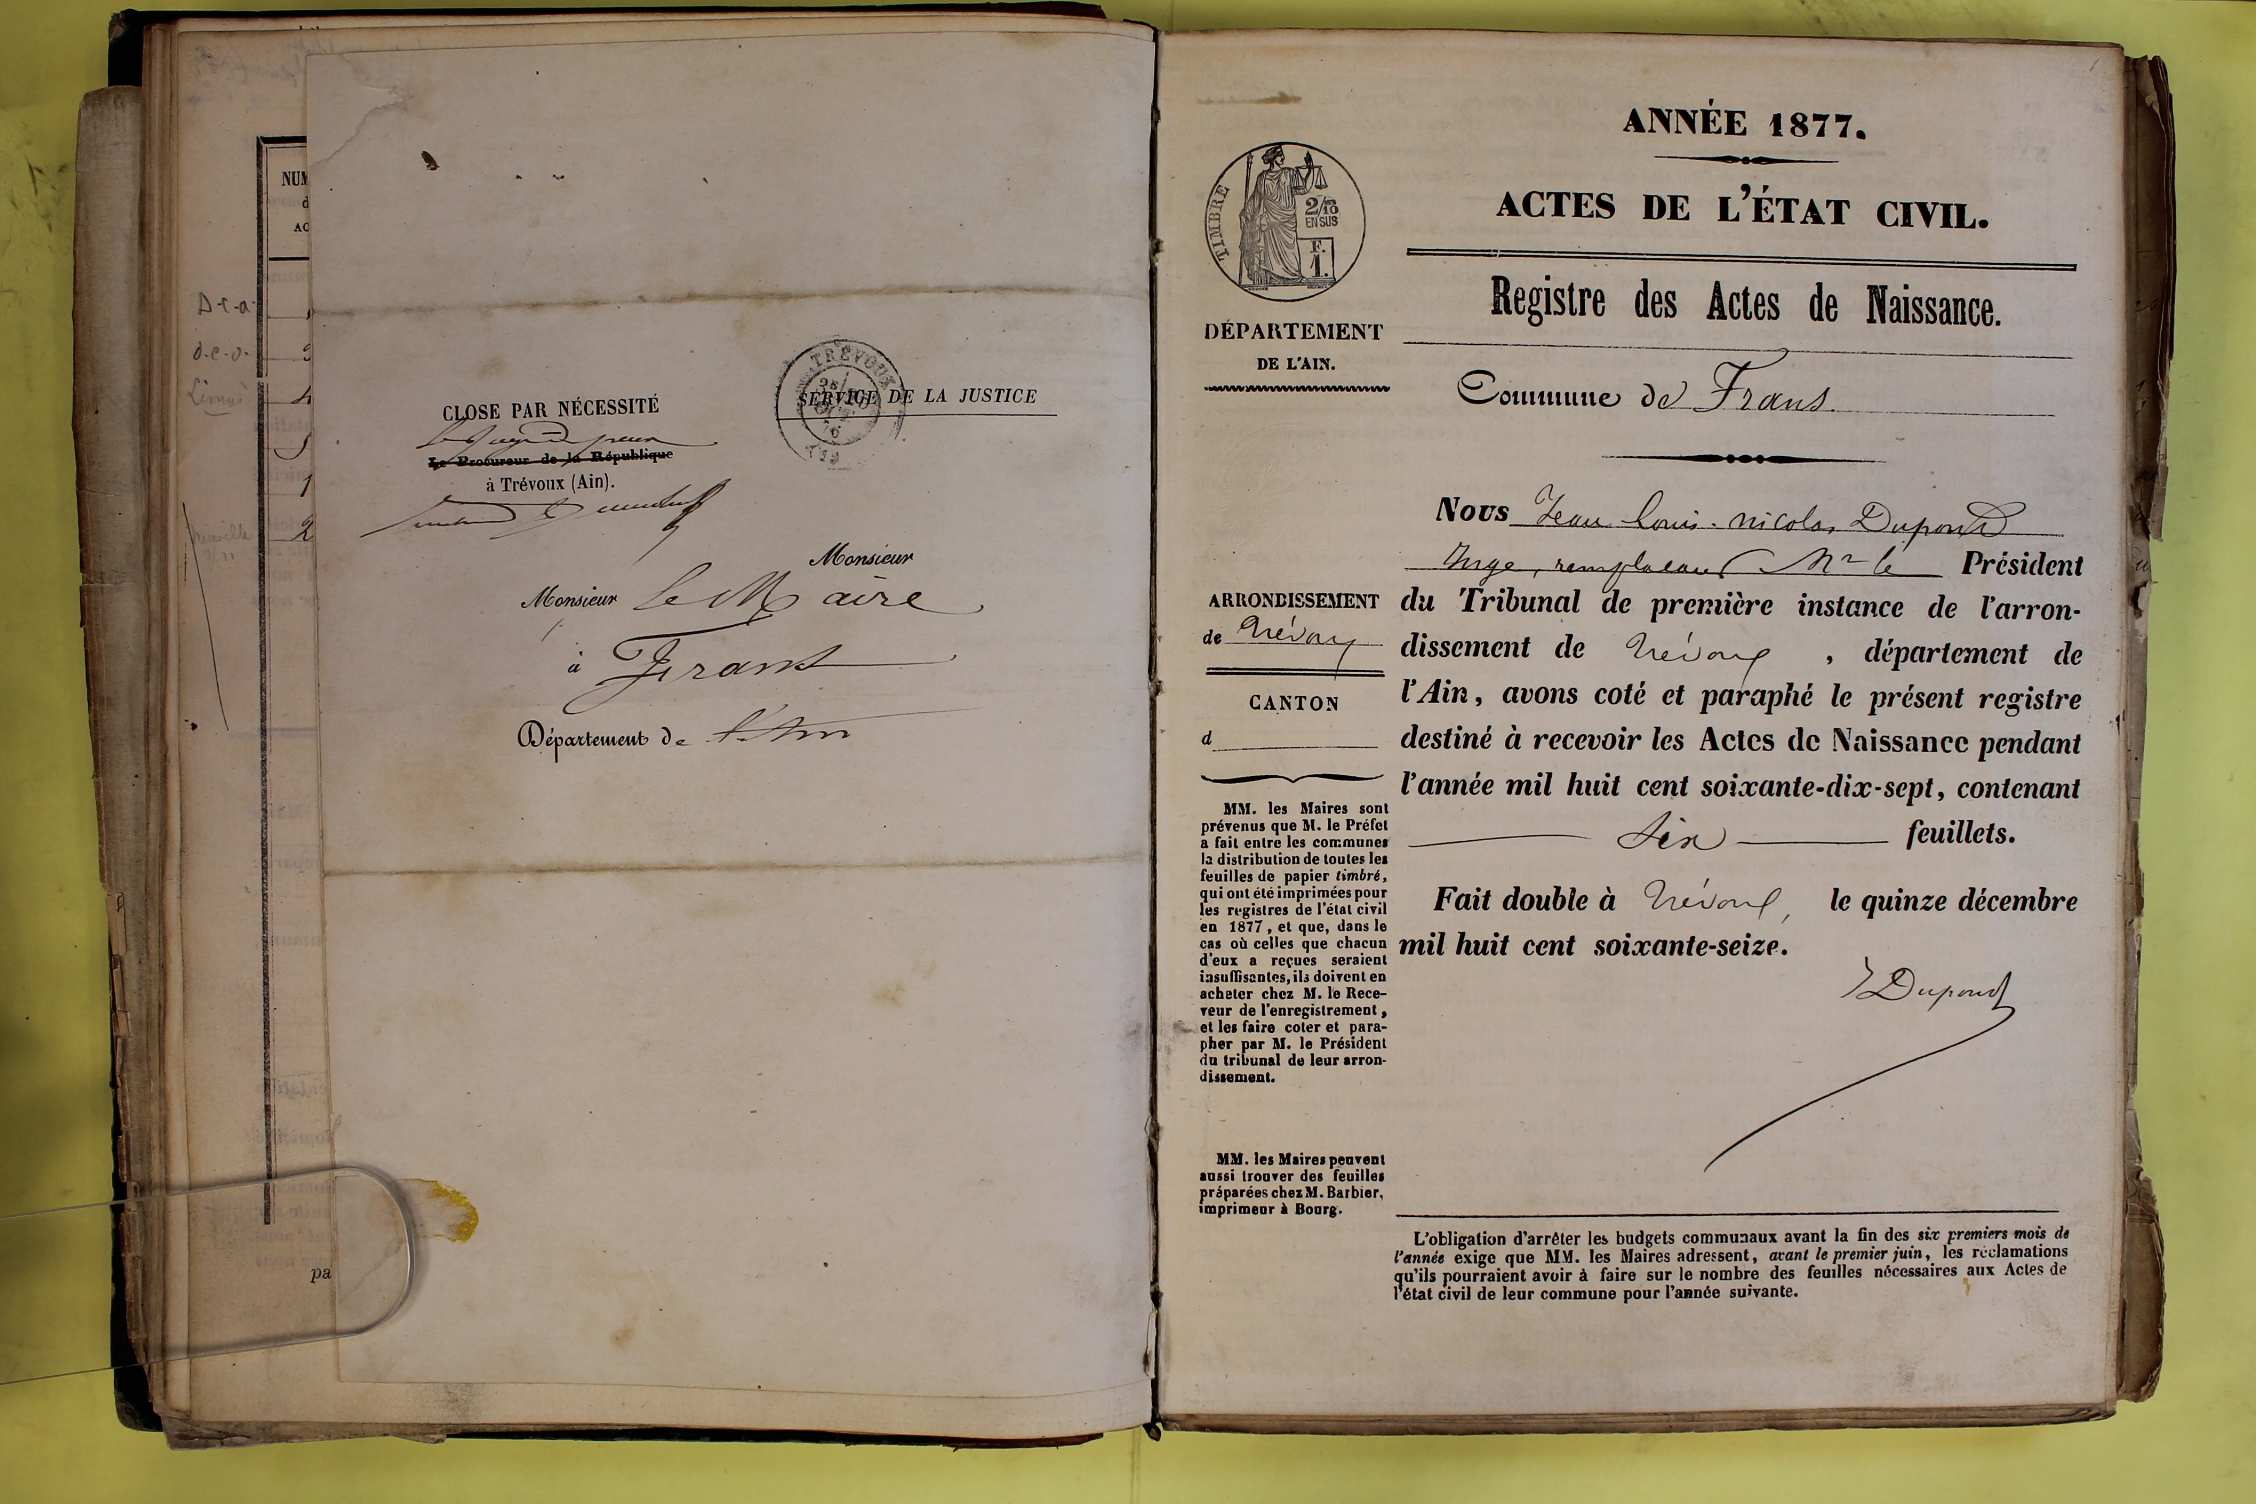 NUM
d
AC
D-e-a-
d.e.v.
3
4
5
1
2
pa
TRÉVOUX
SERVICE DE LA JUSTICE
CLOSE PAR NÉCESSITÉ
Le Procureur de la République
à Trévoux (Ain).
Monsieur
Monsieur le Maire
à Frans
Département de l'Ain
ANNÉE 1877.
ACTES DE L'ÉTAT CIVIL.
Registre des Actes de Naissance.
TIMBRE
2/10
EN SUS
F.
1.
DÉPARTEMENT
DE L'AIN.
Commune de Frans.
ARRONDISSEMENT
de Trévoux
CANTON
d
MM. les Maires sont
prévenus que M. le Préfet
a fait entre les communes
la distribution de toutes les
feuilles de papier timbré,
qui ont été imprimées pour
les registres de l'état civil
en 1877, et que, dans le
cas où celles que chacun
d'eux a reçues seraient
insuffisantes, ils doivent en
acheter chez M. le Rece-
veur de l'enregistrement,
et les faire coter et para-
pher par M. le Président
du tribunal de leur arron-
dissement.
MM. les Maires peuvent
aussi trouver des feuilles
préparées chez M. Barbier,
imprimeur à Bourg.
Nous Jean Louis Nicolas Dupond
Juge, remplaçant Mr le Président
du Tribunal de première instance de l'arron-
dissement de Trévoux, département de
l'Ain, avons coté et paraphé le présent registre
destiné à recevoir les Actes de Naissance pendant
l'année mil huit cent soixante-dix-sept, contenant
six feuillets.
Fait double à Trévoux, le quinze décembre
mil huit cent soixante-seize.
Dupond
L'obligation d'arrêter les budgets communaux avant la fin des six premiers mois de
l'année exige que MM. les Maires adressent, avant le premier juin, les réclamations
qu'ils pourraient avoir à faire sur le nombre des feuilles nécessaires aux Actes de
l'état civil de leur commune pour l'année suivante.